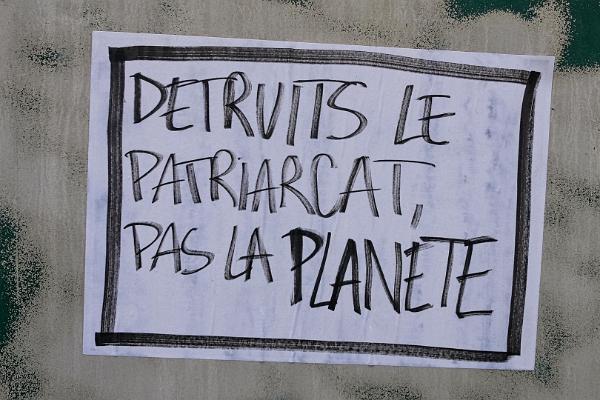 DETRUITS LE
PATRIARCAT,
PAS LA PLANETE